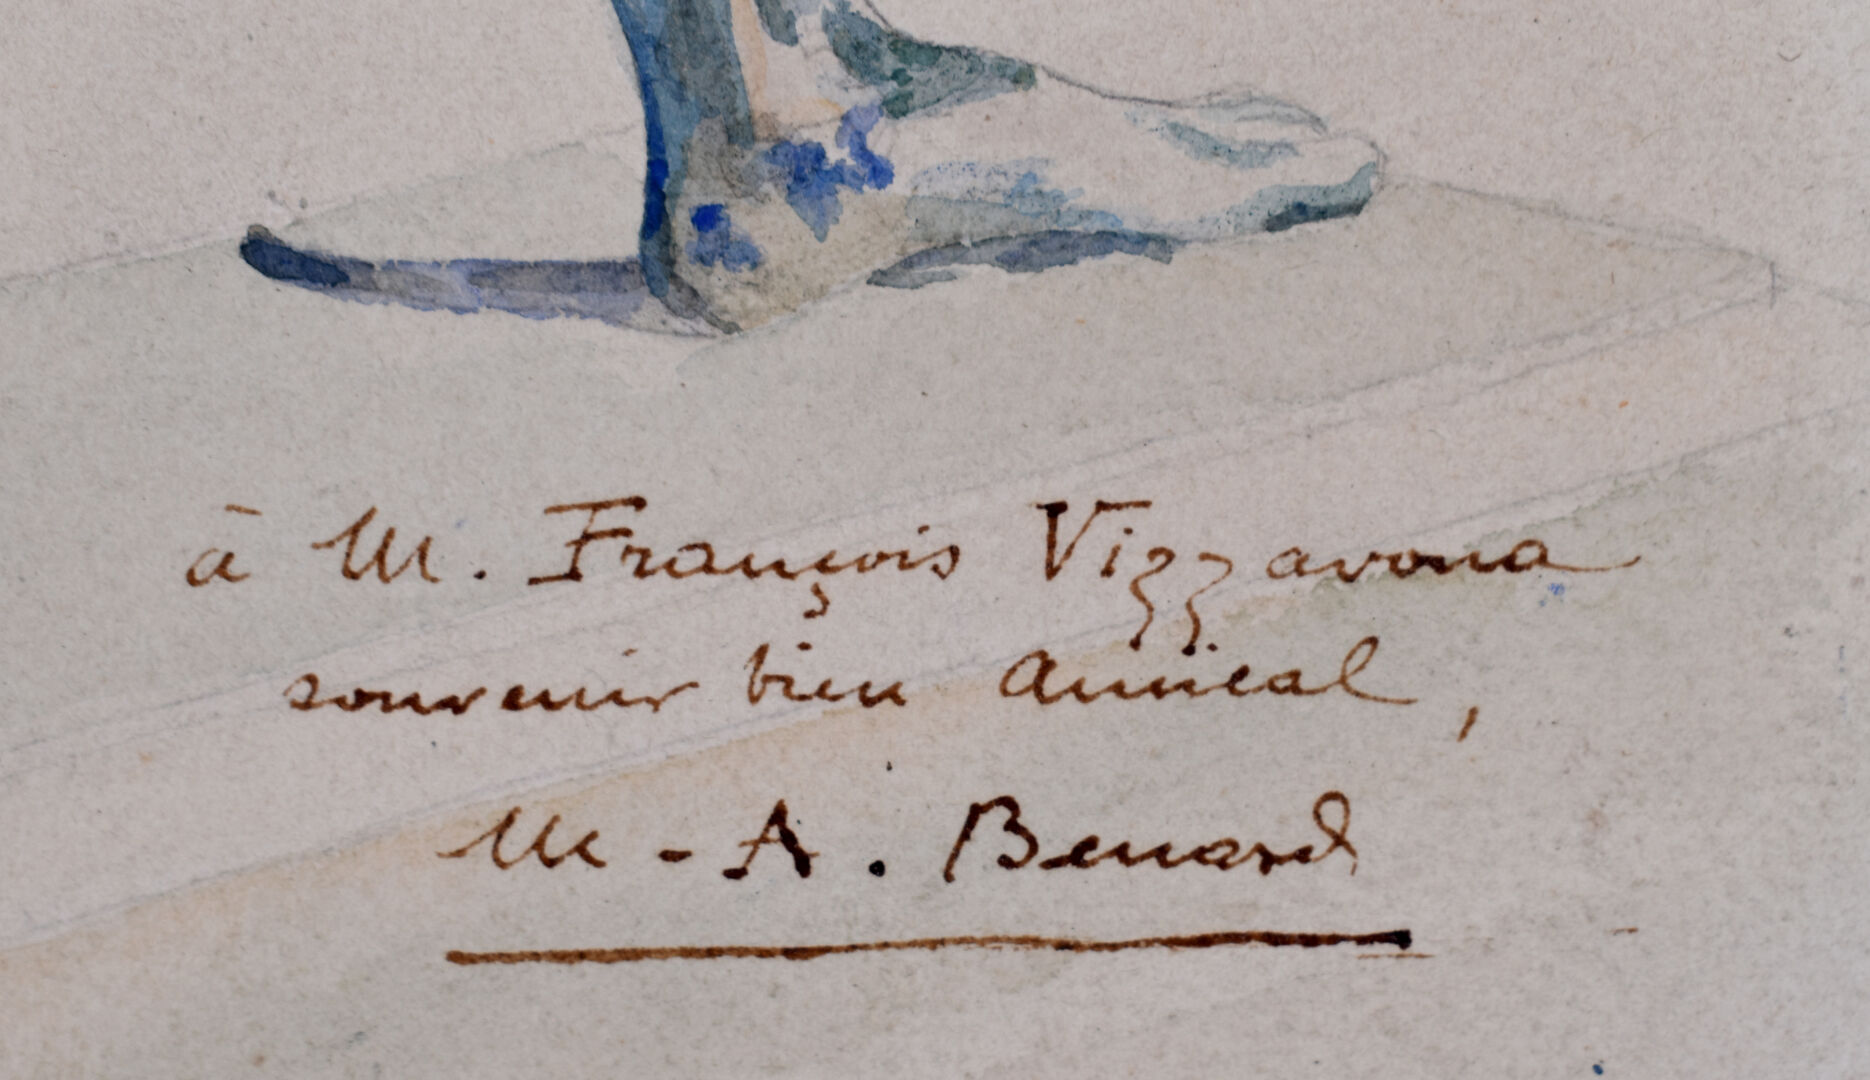 à M. François Vizzavona
souvenir bien amical,
M-A. Benard